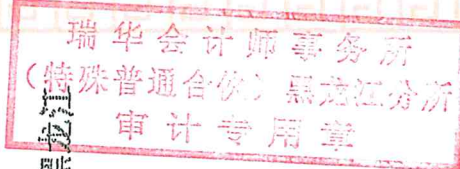 瑞华会计师事务所
（特殊普通合伙）黑龙江分所
审计专用章
黑龙江